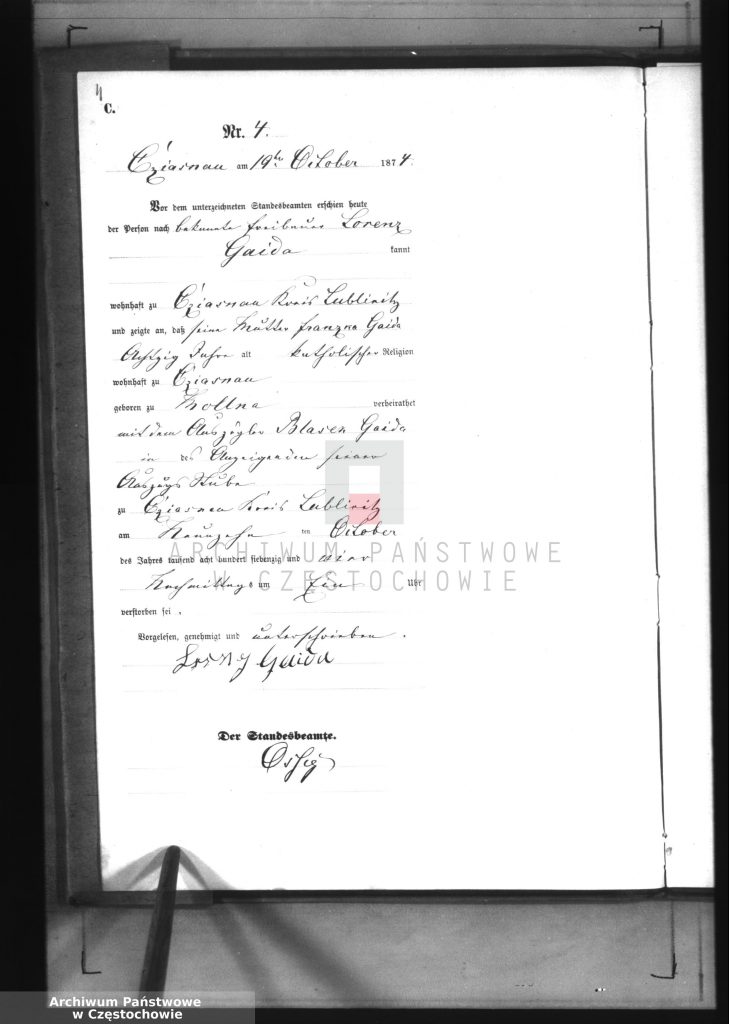 4
C.
Nr. 4.
Cziasnau am 19ten October 1874.
Vor dem unterzeichneten Standesbeamten erschien heute
der Person nach bekannte Freibauer Lorenz
Gaida kannt
wohnhaft zu Cziasnau Kreis Lublinitz
und zeigte an, daß seine Mutter Franzka Gaida
Achtzig Jahre alt katholischer Religion
wohnhaft zu Cziasnau
geboren zu Mollna verheirathet
mit dem Auszügler Blasek Gaida
in des Anzeigenden seiner
Auszugs Stube
zu Cziasnau Kreis Lublinitz
am Neunzehn ten October
des Jahres tausend acht hundert siebenzig und vier
Nachmittags um Ein Uhr
verstorben sei.
Vorgelesen, genehmigt und unterschrieben.
Gaida
Der Standesbeamte.
ARCHIWUM PAŃSTWOWE
W CZĘSTOCHOWIE
Archiwum Państwowe
w Częstochowie